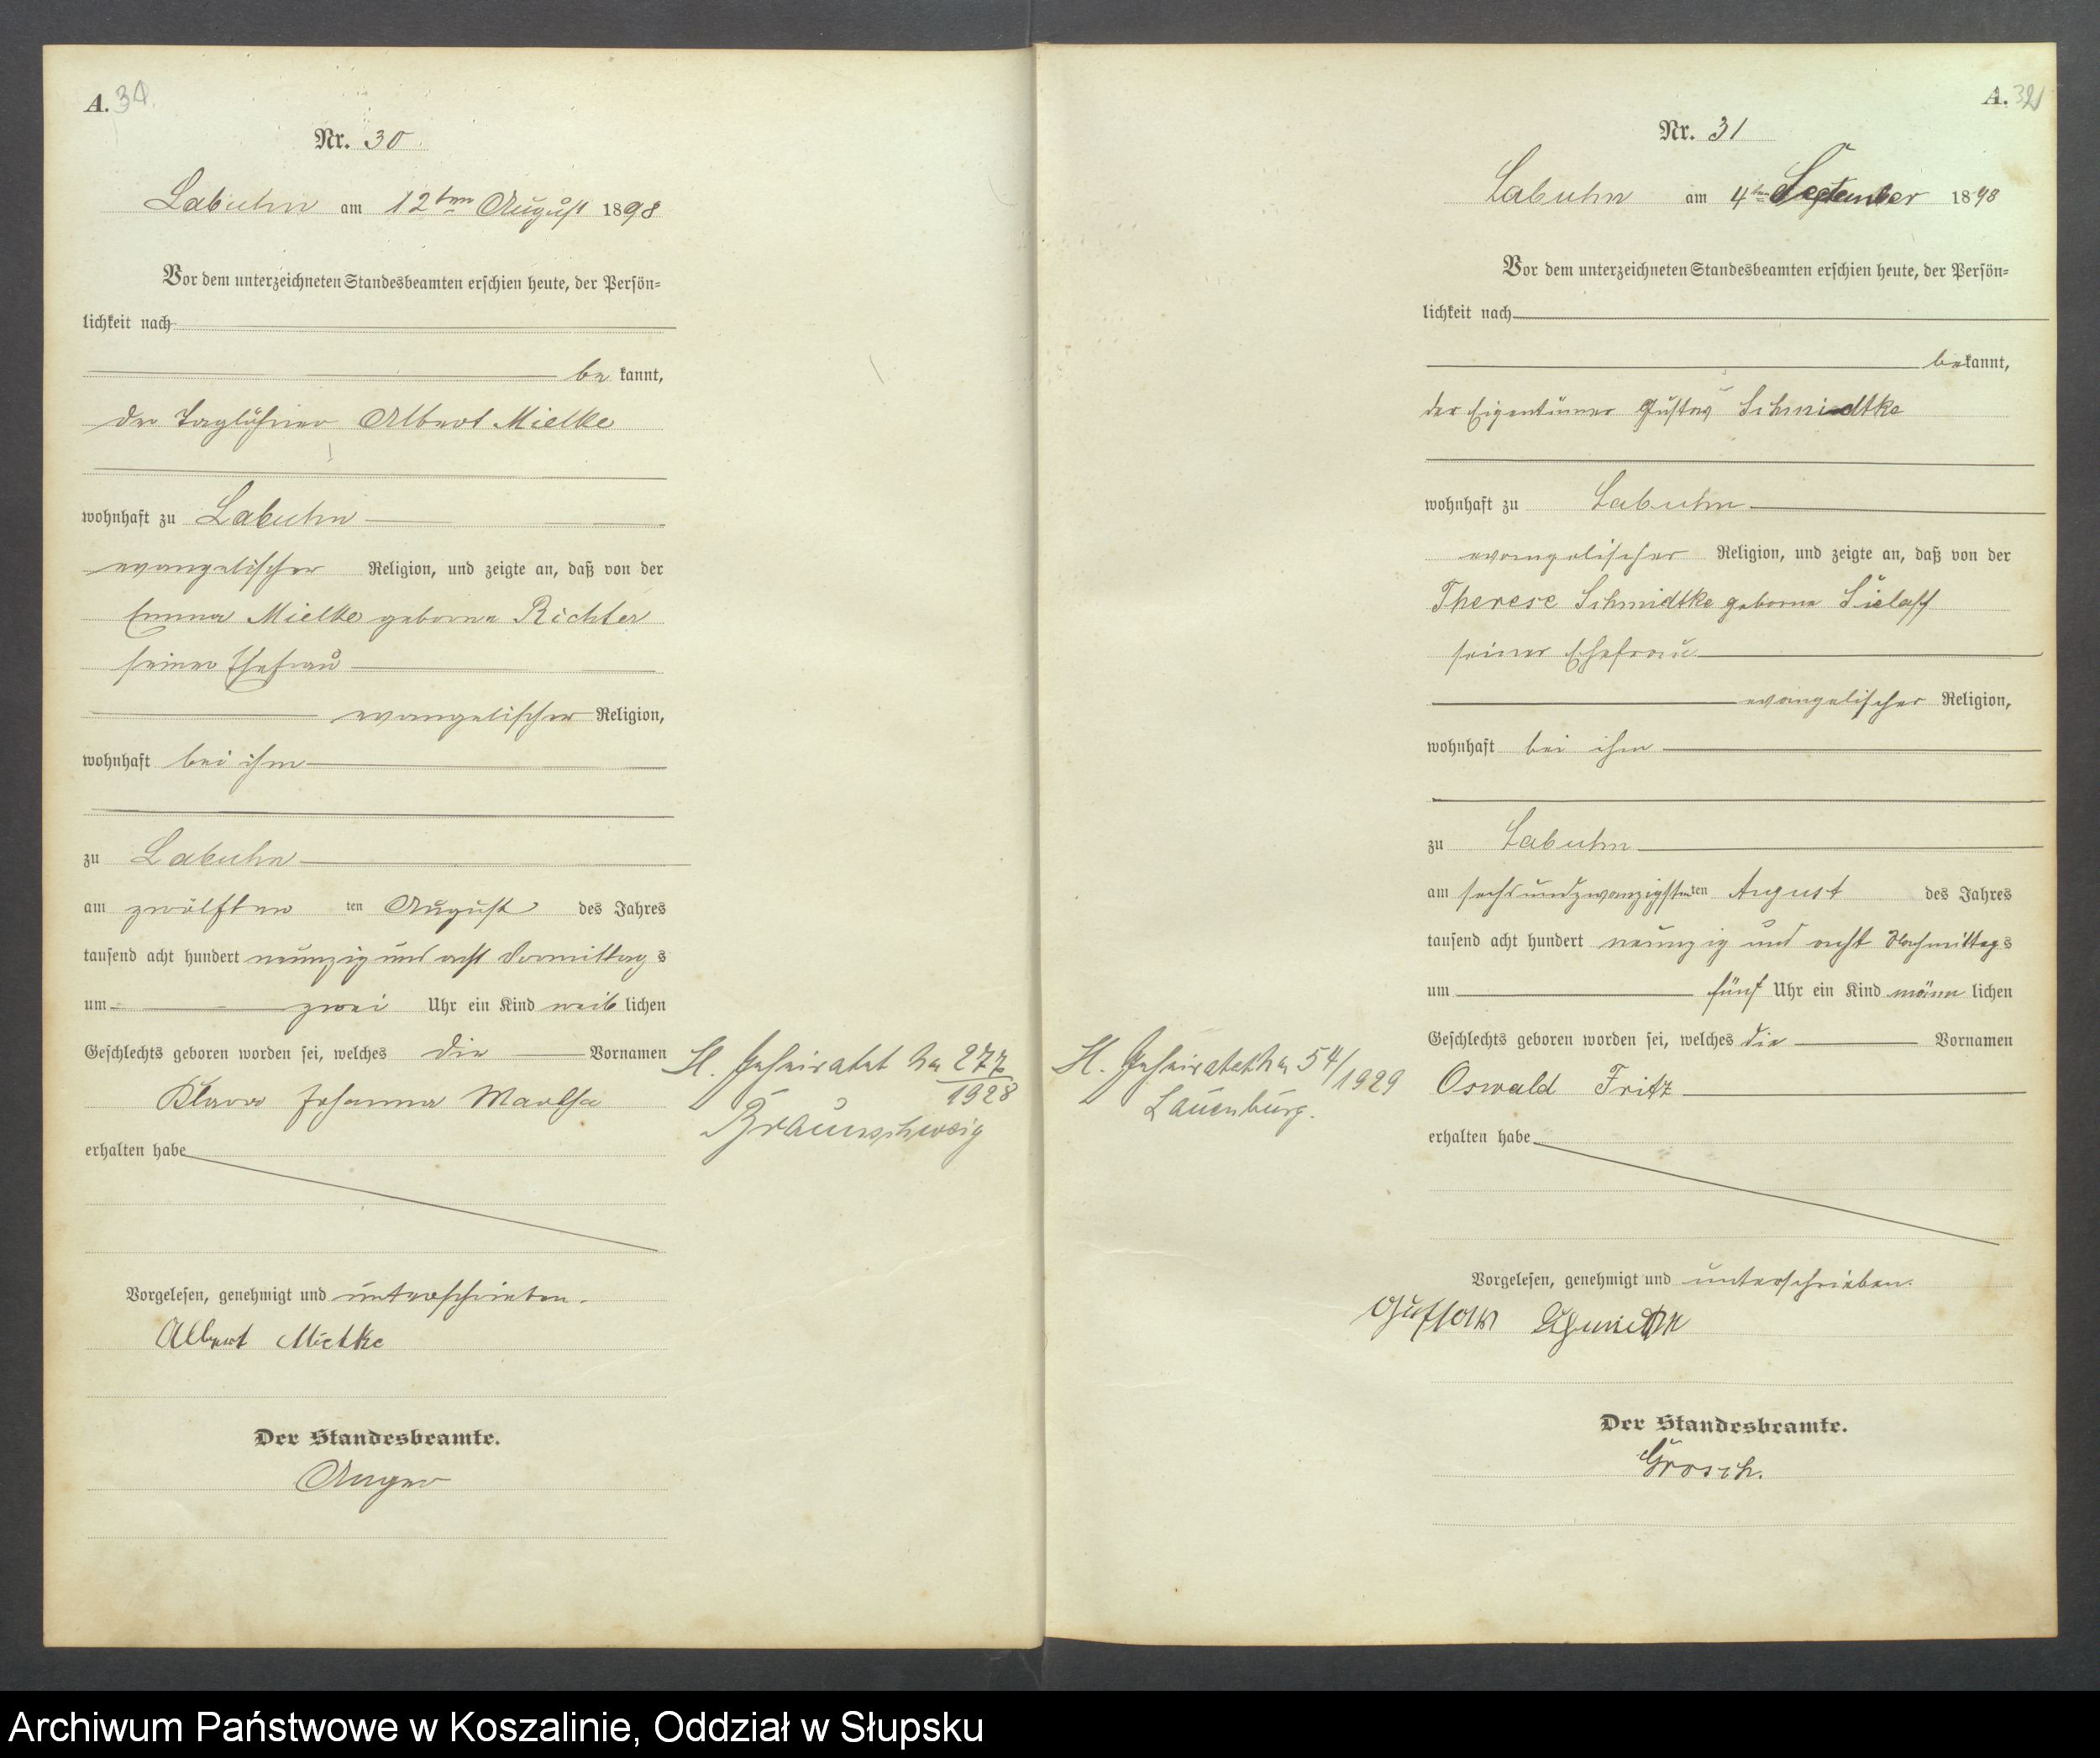 A. 34.
Nr. 30.
Labuhn am 12ten August 1898
Vor dem unterzeichneten Standesbeamten erschien heute, der Persön-
lichkeit nach
be kannt,
der Taglöhner Albert Mielke
wohnhaft zu Labuhn
evangelischer Religion, und zeigte an, daß von der
Emma Mielke geborne Richter
seiner Ehefrau
evangelischer Religion,
wohnhaft bei ihm
zu Labuhn
am zwölften ten August des Jahres
tausend acht hundert neunzig und acht Vormittag s
um zwei Uhr ein Kind weib lichen
Geschlechts geboren worden sei, welches die Vornamen
Klara Johanna Martha
erhalten habe
Vorgelesen, genehmigt und unterschrieben.
Albert Mielke
Der Standesbeamte.
Anger
H. Geheiratet No 277
1928
Braunschweig
A. 31
Nr. 31
Labuhn am 4ten September 1898
Vor dem unterzeichneten Standesbeamten erschien heute, der Persön-
lichkeit nach
bekannt,
der Eigentümer Gustav Schmidtke
wohnhaft zu Labuhn
evangelischer Religion, und zeigte an, daß von der
Therese Schmidtke geborne Sielaff
seiner Ehefrau
evangelischer Religion,
wohnhaft bei ihm
zu Labuhn
am sechsundzwanzigsten ten August des Jahres
tausend acht hundert neunzig und acht Nachmittags
um fünf Uhr ein Kind männ lichen
Geschlechts geboren worden sei, welches die Vornamen
Oswald Fritz
erhalten habe
H. Geheiratet No 54/1929
Lauenburg.
Vorgelesen, genehmigt und unterschrieben.
Gustav Schmidtke
Der Standesbeamte.
Grosch.
Archiwum Państwowe w Koszalinie, Oddział w Słupsku